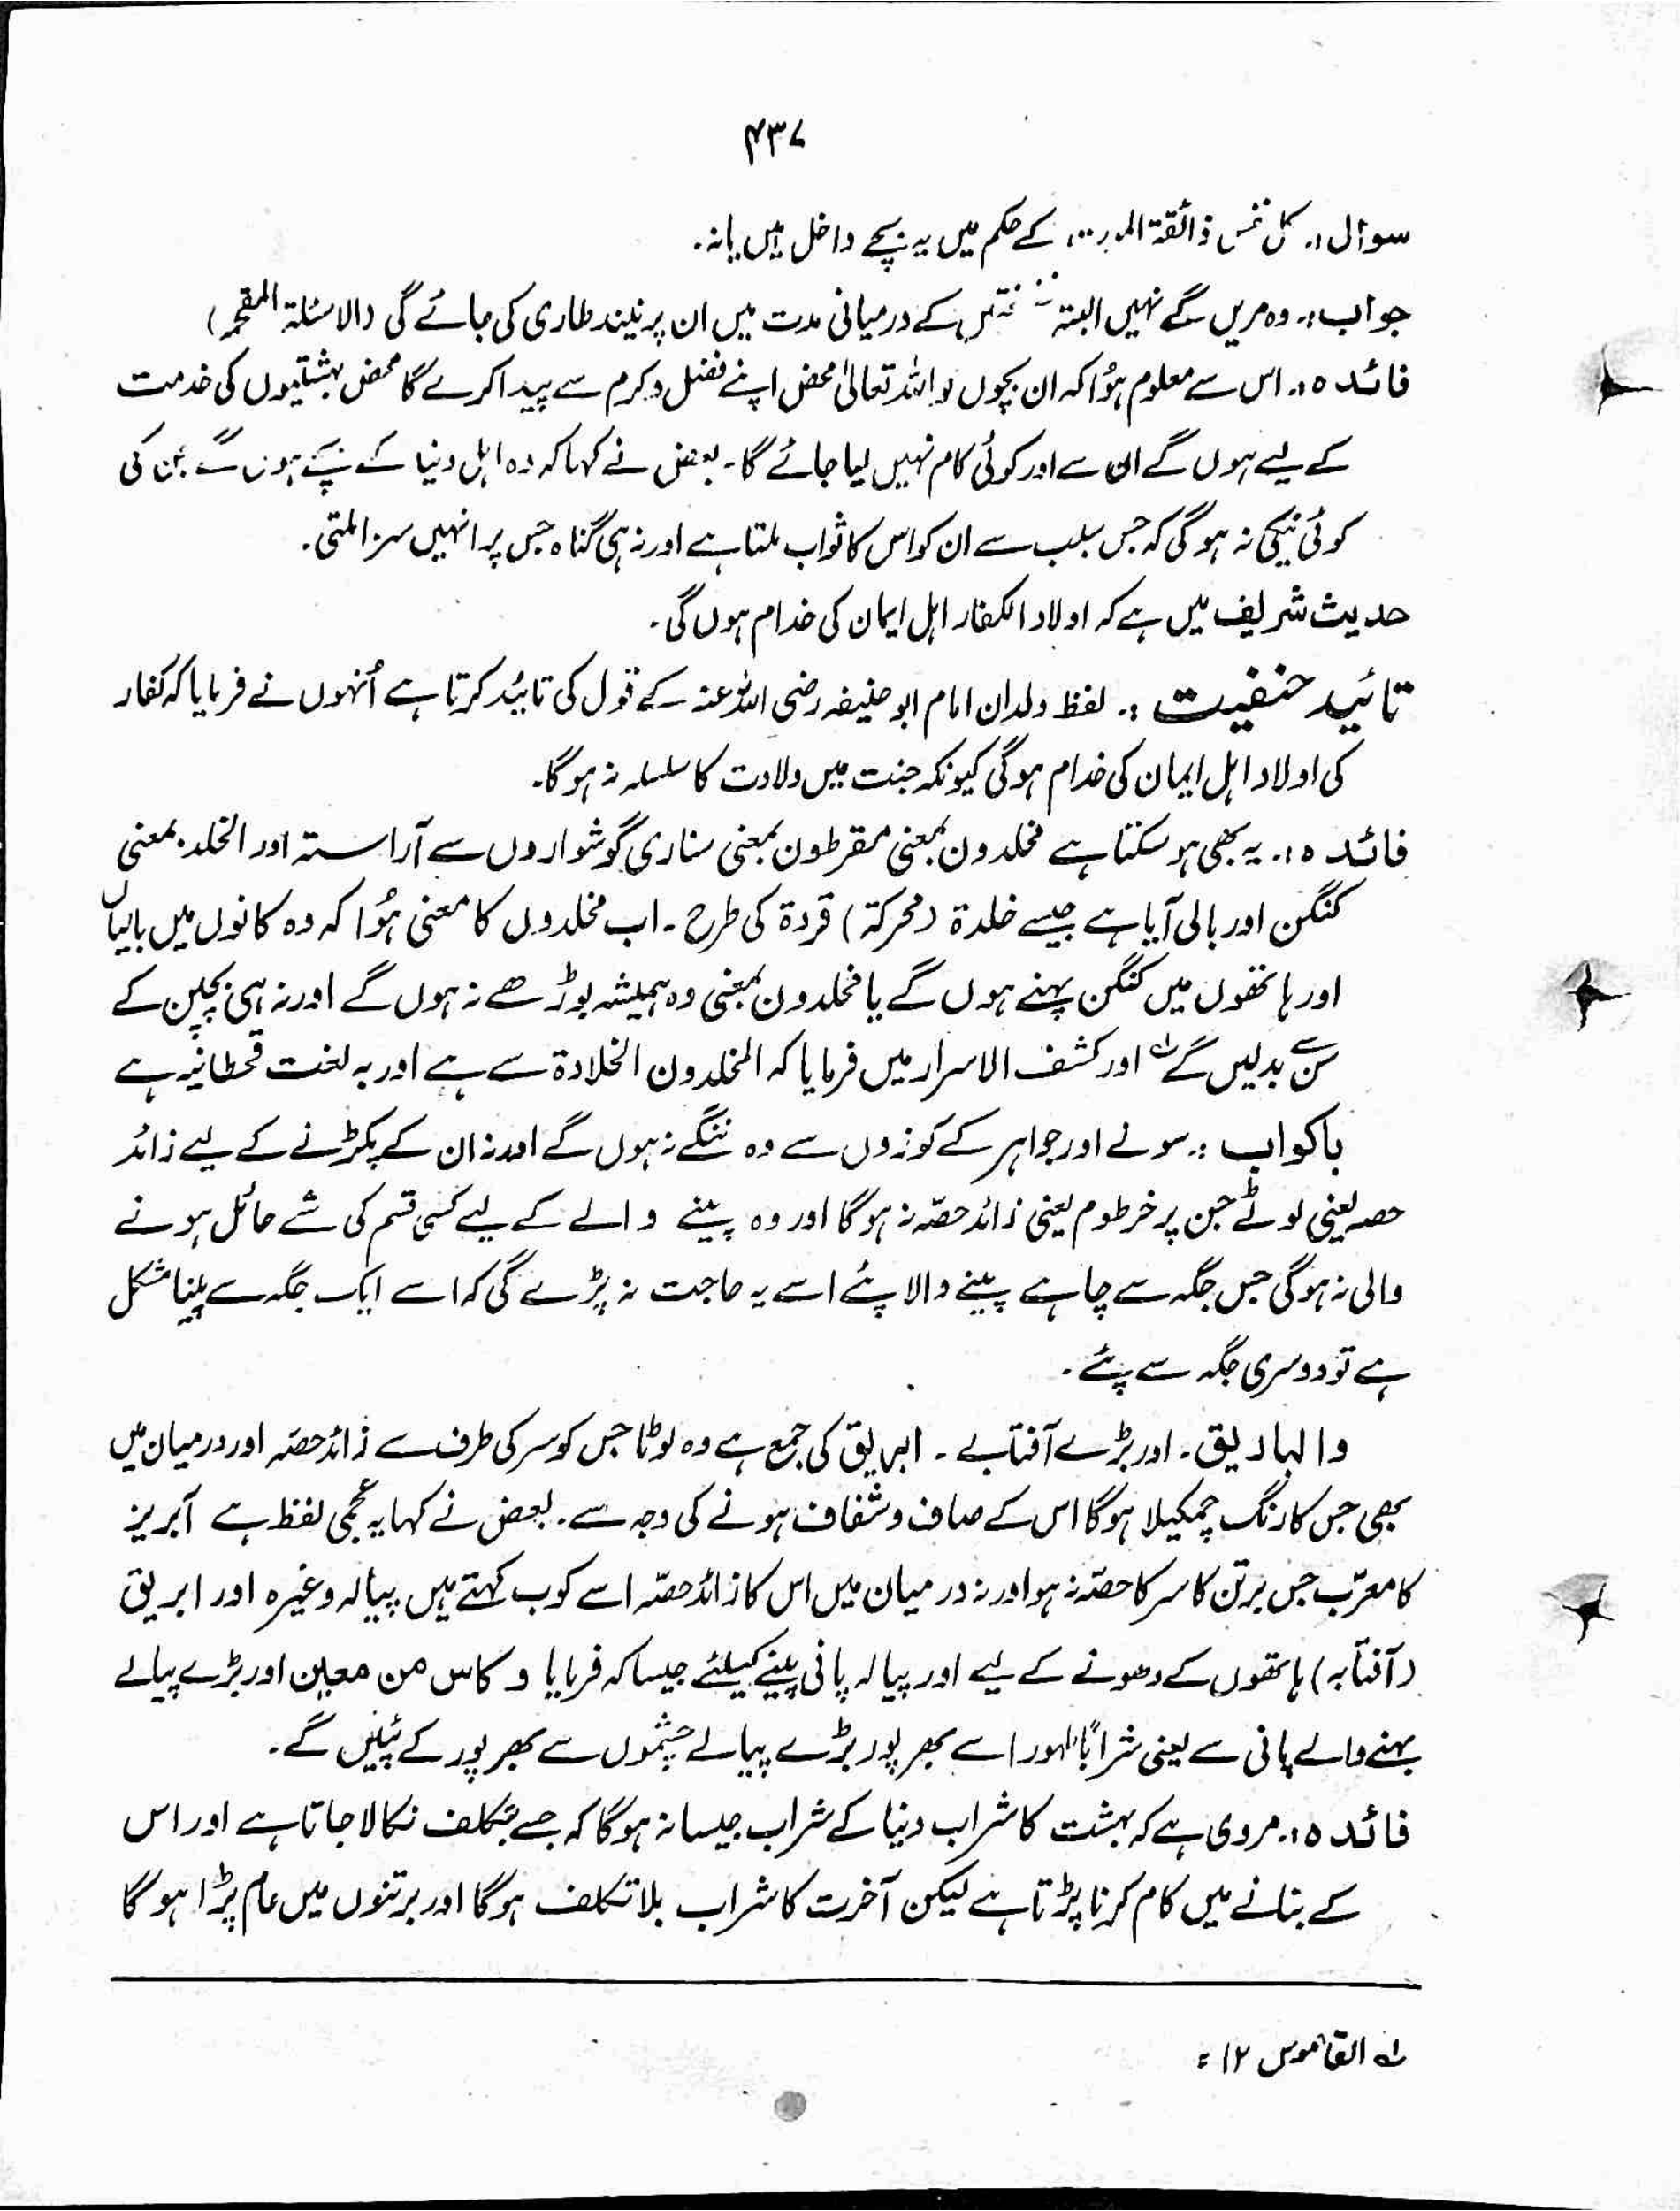 ۴۳۷
سوال :۔ کل نفس ذائقۃ کے حکم میں یہ بچے داخل ہیں یا نہ۔
جواب :۔ وہ مریں گے نہیں البتہ کے درمیانی مدت میں ان پر نیند طاری کی جائے گی (الاسئلۃ المقحمہ)
فائدہ :۔ اس سے معلوم ہُوا کہ ان بچوں کو اللہ تعالیٰ محض اپنے فضل و کرم سے پیدا کرے گا محض بہشتیوں کی خدمت
کے لیے ہوں گے ان سے اور کوئی کام نہیں لیا جائے گا۔ بعض نے کہا کہ وہ اہل دنیا کے بچے ہوں گے جن کی
کوئی نیکی نہ ہو گی کہ جس سبب سے ان کو اس کا ثواب ملتا ہے اور نہ ہی گناہ جس پر انہیں سزا ملتی۔
حدیث شریف میں ہے کہ اولاد الکفار اہل ایمان کی خدام ہوں گی۔
تائید حنفیت :۔ لفظ ولدان امام ابو حنیفہ رضی اللہ عنہ کے قول کی تائید کرتا ہے اُنہوں نے فرمایا کہ کفار
کی اولاد اہل ایمان کی خدام ہو گی کیونکہ جنت میں ولادت کا سلسلہ نہ ہو گا۔
فائدہ :۔ یہ بھی ہو سکتا ہے مخلدون بمعنی مقرطون بمعنی سناری گوشواروں سے آراستہ اور الخلد بمعنی
کنگن اور بالی آیا ہے جیسے خلدۃ (محرکۃ) قردۃ کی طرح۔ اب مخلدوں کا معنی ہُوا کہ وہ کانوں میں بالیاں
اور ہاتھوں میں کنگن پہنے ہوں گے یا مخلدون بمعنی وہ ہمیشہ بوڑھے نہ ہوں گے اور نہ ہی بچپن کے
سن سے بدلیں گے لہ اور کشف الاسرار میں فرمایا کہ المخلدون الخلادۃ سے ہے اور یہ لغت قحطانیہ ہے
باکواب :۔ سونے اور جواہر کے کوزوں سے وہ ننگے نہ ہوں گے اور نہ ان کے پکڑنے کے لیے زائد
حصہ یعنی لوٹے جن پر خرطوم یعنی زائد حصّہ نہ ہو گا اور وہ پینے والے کے لیے کسی قسم کی شے حائل ہونے
والی نہ ہو گی جس جگہ سے چاہے پینے والا پئے اسے یہ حاجت نہ پڑے گی کہ اسے ایک جگہ سے پینا مشکل
ہے تو دوسری جگہ سے پئے۔
والباریق۔ اور بڑے آفتابے ۔ ابریق کی جمع ہے وہ لوٹا جس کو سر کی طرف سے زائد حصّہ اور درمیان میں
بھی جس کا رنگ چمکیلا ہو گا اس کے صاف و شفاف ہونے کی وجہ سے۔ بعض نے کہا یہ عجمی لفظ ہے آبریز
کا معرّب جس برتن کا سر کا حصّہ نہ ہو اور نہ درمیان میں اس کا زائد حصّہ اسے کوب کہتے ہیں پیالہ وغیرہ اور ابریق
(آفتابہ) ہاتھوں کے دھونے کے لیے اور پیالہ پانی پینے کیلئے جیسا کہ فرمایا و کاس من معین اور بڑے پیالے
بہنے والے پانی سے یعنی شراباً طہور اسے بھر پور بڑے پیالے چشموں سے بھر پور کے پئیں گے۔
فائدہ :۔ مروی ہے کہ بہشت کا شراب دنیا کے شراب جیسا نہ ہو گا کہ جسے بتکلف نکالا جاتا ہے اور اس
کے بنانے میں کام کرنا پڑتا ہے لیکن آخرت کا شراب بلا تکلف ہو گا اور برتنوں میں عام پڑا ہو گا
لہ القاموس ۱۲ ؂